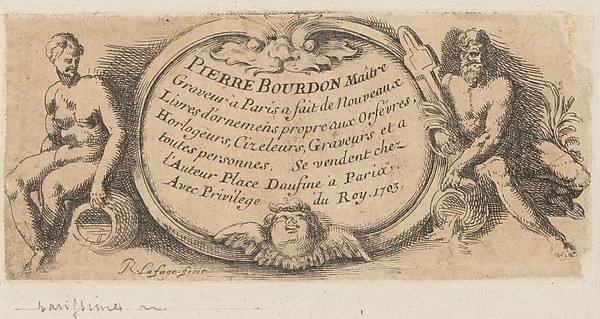 PIERRE BOURDON Maître
Graveur à Paris a fait de Nouveaux
Livres d'ornemens propre aux Orfévres,
Horlogeurs, Cizeleurs, Graveurs et a
toutes personnes. Se vendent chez
l'Auteur Place Daufine à Paris,
Avec Privilege du Roy. 1703.
R. Lafage fecit
rarissime